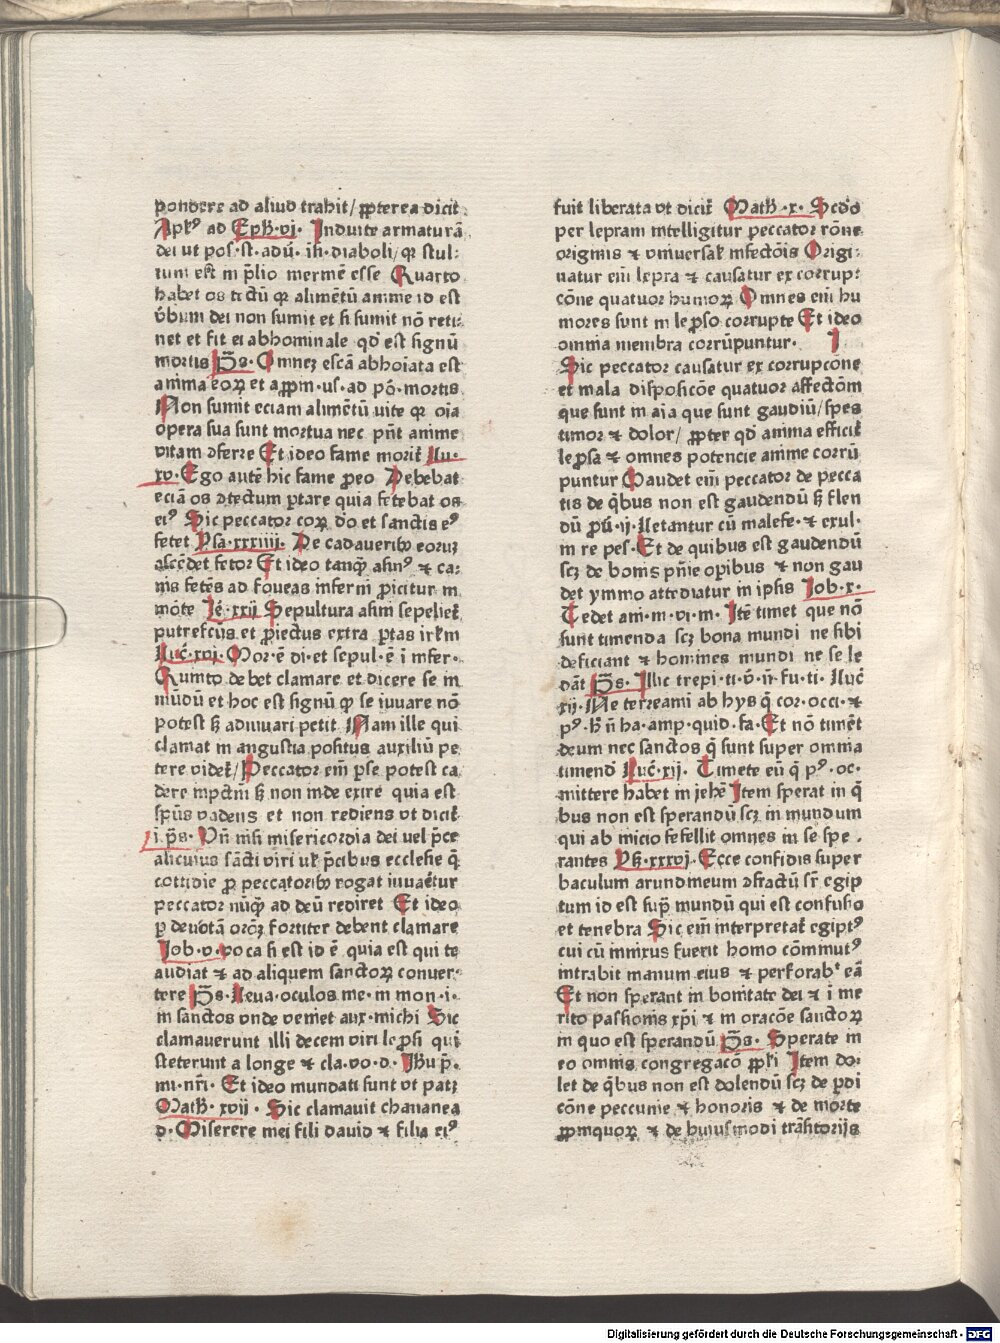 pondere ad aliud trahit/ ꝓpterea dicit
Aplꝰ ad Eph̄·vj· Induite armaturā
dei ut pos·st·adū· iñ·diaboli/ qꝛ stul⸗
tum est in p̄lio inermē esse Quarto
habet os tectū qꝛ alimētū anime id est
v̄bum dei non sumit et si sumit nō reti⸗
net et fit ei abhominale qd̓ est signū
mortis P̄s· Omnez escā abhoīata est
anima eoꝝ et a ꝓpm·us·ad po᷑·mortis
Non sumit eciam alimētū uite qꝛ oīa
opera sua sunt mortua nec pn̄t anime
vitam ꝯferre Et ideo fame morit᷑ Lu·
xv· Ego autē hic fame ꝑeo Debebat
eciā os ꝯtectum ꝑtare quia fetebat os
eiꝰ Sic peccator coꝝ do et sanctis eꝰ
fetet Psa·xxxiiii· De cadaueribꝰ eoruꝫ
ascēdet fetor Et ideo tanqꝫ asinꝰ ⁊ ca⸗
nis fetēs ad foueas inferni ꝓicitur in
mōte Ie᷑·xxij Sepultura asini sepeliet᷑
putrefcūs et ꝓiectus extra ꝑtas irl̄m
Luc̄·xvj· Mor·ē di·et sepul·ē ī infer·
Quinto debet clamare et dicere se in
mūdū et hoc est signū ꝙ se iuuare nō
potest sꝫ adiuuari petit Nam ille qui
clamat in angustia positus auxiliū pe
tere videt᷑/ Peccator eīm ꝑ se potest ca
dere in pctm̄ sꝫ non inde exire quia est
spūs vadens et non rediens vt dicit᷑
i p̄s· Vn̄ nisi misericordia dei uel p̄ce
alicuius sācti viri ul᷑ p̄cibus ecclesie q̄
cottidie ꝓ peccatoribꝰ rogat iuuaretur
peccator nūqꝫ ad deū rediret Et ideo
ꝑ deuotā oroēꝫ fortiter debent clamare
Iob·v·voca si est id ē quia est qui te
audiat ⁊ ad aliquem sanctoꝝ conuer⸗
tere P̄s·Leua·oculos me·in mon·i·
in sanctos vnde veniet aux·michi Sic
clamauerunt illi decem viri leprosi qui
steterunt a longe ⁊ cla·vo·d· Ihū p̄·
mi·nr̄i· Et ideo mundati sunt vt patꝫ
Math̄·xvij· Sic clamauit chananea
d·Miserere mei fili dauid ⁊ filia eiꝰ
fuit liberata vt dicit᷑ Math̄·x· Scd̓o
per lepram intelligitur peccator rōne
originis ⁊ vniuersal᷑ infectōis Origi⸗
natur eīm lepra ⁊ causatur ex corrup⸗
cōne quatuor humoꝝ Omnes eīm hu
mores sunt in leproso corrupte Et ideo
omnia membra corrūpuntur·
Sic peccator causatur ex corrupcone
et mala disposicōe quatuor affectōm
que sunt in aīa que sunt gaudiū/ spes
timor ⁊ dolor/ ꝓpter qd̓ anima efficit᷑
leprosa ⁊ omnes potencie anime corrū
puntur Gaudet eīm peccator de pecca
tis de q̄bus non est gaudendū sꝫ flen
dū ꝓū·ij·Letantur cū malefe·⁊ exul·
in re pes·Et de quibus est gaudendū
scꝫ de bonis pn̄ie opibus ⁊ non gau
det ymmo attediatur in ipsis Iob·x·
Tedet ani·m·vi·m· Itē timet que nō
sunt timenda scꝫ bona mundi ne sibi
deficiant ⁊ homines mundi ne se le
dāt P̄s· Illic trepi·ti·v̄·n̄·fu·ti· Luc̄
xij· Ne terreami ab hys q̄ cor·occi·⁊
pꝰ·h̄ n̄ ha·amp·quid·fa·Et nō timēt
deum nec sanctos q̄ sunt super omnia
timend̄ Luc̄·xij· Timete eū q̄ pꝰ·oc·
mittere habet in jehē Item sperat in q̄
bus non est sperandū scꝫ in mundum
qui ab inicio fefellit omnes in se spe·
rantes Ys̄·xxxvj·Ecce confidis super
baculum arundineum ꝯfractū sr̄ egip
tum id est sup̄ mundū qui est confusio
et tenebra Sic eīm interpretat᷑ egiptꝰ
cui cū innixus fuerit homo cōminutꝰ
intrabit manum eius ⁊ perforabᵗ eā
Et non sperant in bonitate dei ⁊ ī me
rito passionis xp̄i ⁊ in oracōe sanctoꝝ
in quo est sperandū P̄s· Sperate in
eo omnis congregacō ꝓpl̓i Item do⸗
let de q̄bus non est dolendū scꝫ de ꝑdi
cōne peccunie ⁊ honoris ⁊ de morte
ꝓpinquoꝝ ⁊ de huiusmodi trāsitorijs
Digitalisierung gefördert durch die Deutsche Forschungsgemeinschaft - DFG